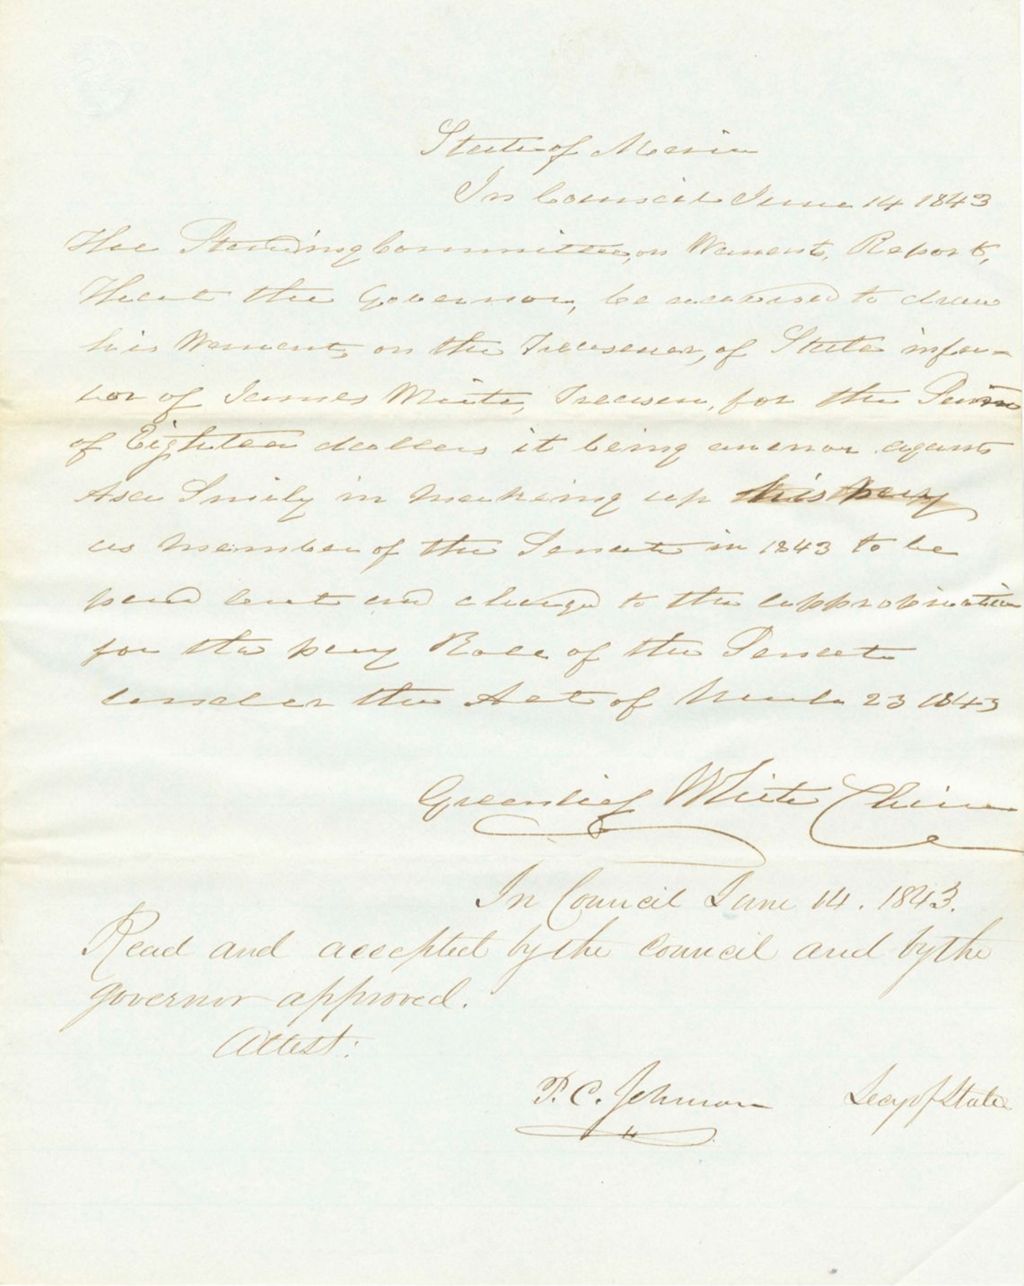 State of Maine
In Council June 14 1843
The Standing Committee, on Warrants, Report,
That the Governor, be to draw
his Warrant, on the Treasurer, of State in fav-
or of James White, for the Sum
of Eighteen dollars it being an error against
Asa Smily in making up his pay
as member of the Senate in 1843 to be
paid out and charged to the appropriation
for the pay Role of the Senate
under the Act of March 23 1843
Greenlief White Chirm
In Council June 14. 1843.
Read and accepted by the Council and by the
governor approved.
Attest:
P. C. Johnson Secy of State